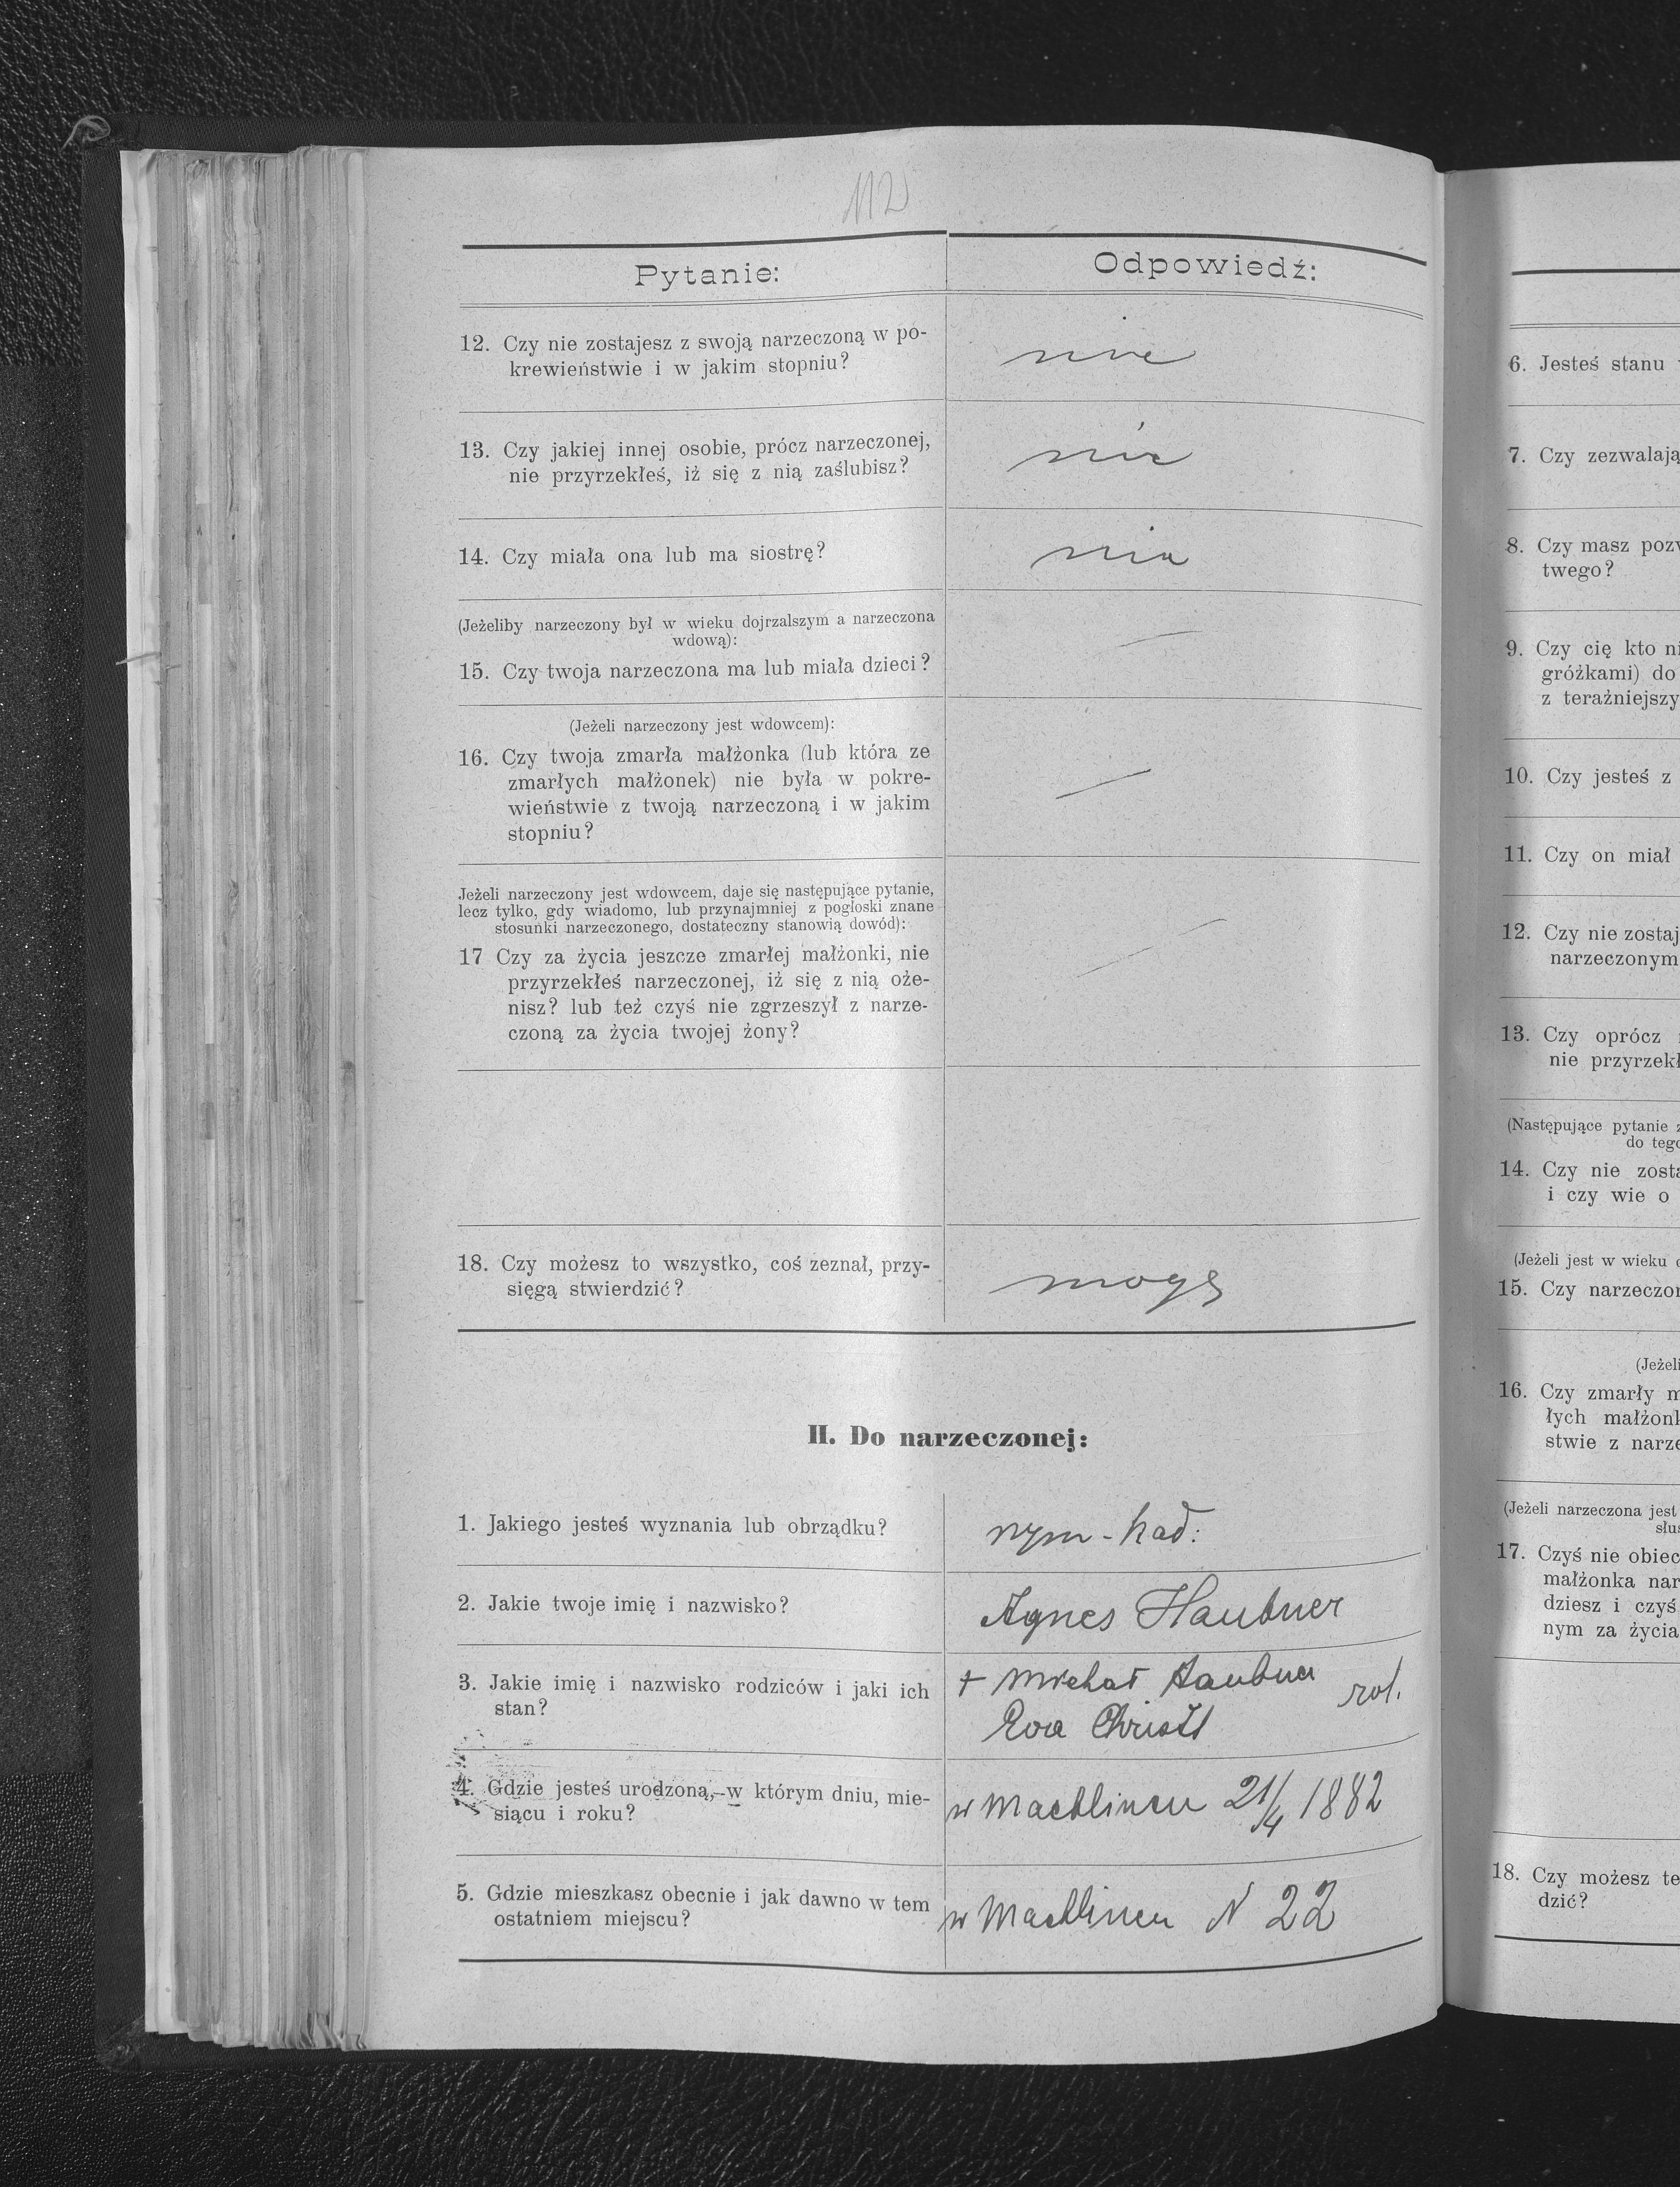 112
Pytanie:
Odpowiedź:
12. Czy nie zostajesz z swoją narzeczoną w po-
krewieństwie i w jakim stopniu?
nie
13. Czy jakiej innej osobie, prócz narzeczonej,
nie przyrzekłeś, iż się z nią zaślubisz?
nie
14. Czy miała ona lub ma siostrę?
nie
(Jeżeliby narzeczony był w wieku dojrzalszym a narzeczona
wdową):
15. Czy twoja narzeczona ma lub miała dzieci?
(Jeżeli narzeczony jest wdowcem):
16. Czy twoja zmarła małżonka (lub która ze
zmarłych małżonek) nie była w pokre-
wieństwie z twoją narzeczoną i w jakim
stopniu?
Jeżeli narzeczony jest wdowcem, daje się następujące pytanie,
lecz tylko, gdy wiadomo, lub przynajmniej z pogłoski znane
stosunki narzeczonego, dostateczny stanowią dowód):
17 Czy za życia jeszcze zmarłej małżonki, nie
przyrzekłeś narzeczonej, iż się z nią oże-
nisz? lub też czyś nie zgrzeszył z narze-
czoną za życia twojej żony?
18. Czy możesz to wszystko, coś zeznał, przy-
sięgą stwierdzić?
mogę
II. Do narzeczonej:
1. Jakiego jesteś wyznania lub obrządku?
rzym-kat:
2. Jakie twoje imię i nazwisko?
Agnes Haubner
3. Jakie imię i nazwisko rodziców i jaki ich
stan?
+ Michał Haubner rol.
Eva Christl
4. Gdzie jesteś urodzoną, w którym dniu, mie-
siącu i roku?
w Machlincu 21/4 1882
5. Gdzie mieszkasz obecnie i jak dawno w tem
ostatniem miejscu?
w Machlincu N 22
6. Jesteś stanu
7. Czy zezwalają
8. Czy masz pozw
twego?
9. Czy cię kto ni
gróżkami) do
z teraźniejszy
10. Czy jesteś z
11. Czy on miał
12. Czy nie zostaj
narzeczonym
13. Czy oprócz
nie przyrzekł
(Następujące pytanie z
do tego
14. Czy nie zosta
i czy wie o
(Jeżeli jest w wieku d
15. Czy narzeczon
(Jeżeli
16. Czy zmarły m
łych małżonk
stwie z narze
(Jeżeli narzeczona jest
słus
17. Czyś nie obiec
małżonka nar
dziesz i czyś
nym za życia
18. Czy możesz te
dzić?